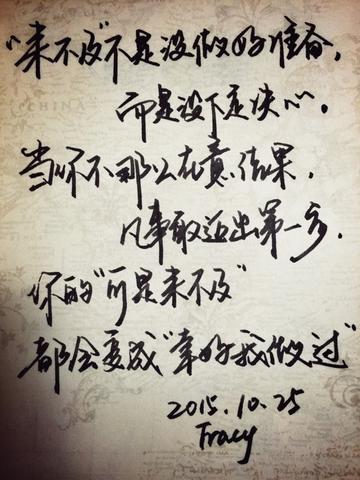 “来不及”不是没做好准备，
而是没下定决心。
当你不那么在意结果，
凡事敢迈出第一步，
你的“可是来不及”
都会变成“幸好我做过”
2015.10.25
Tracy
CHINA